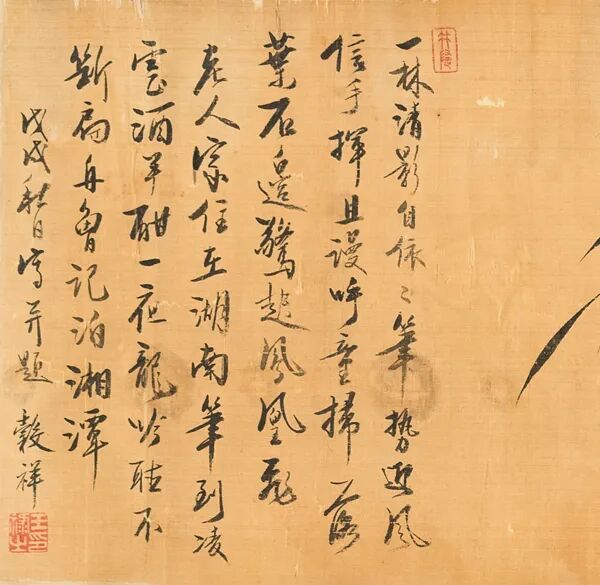 一林清影自依〻筆勢迎風
信手揮且謾呼童掃落
葉石邊驚起鳳凰飛
老人家住在湖南筆到凌
雲酒半酣一夜龍吟聽不
斷扁舟曾記泊湘潭
戊戌秋日寫并題 穀祥